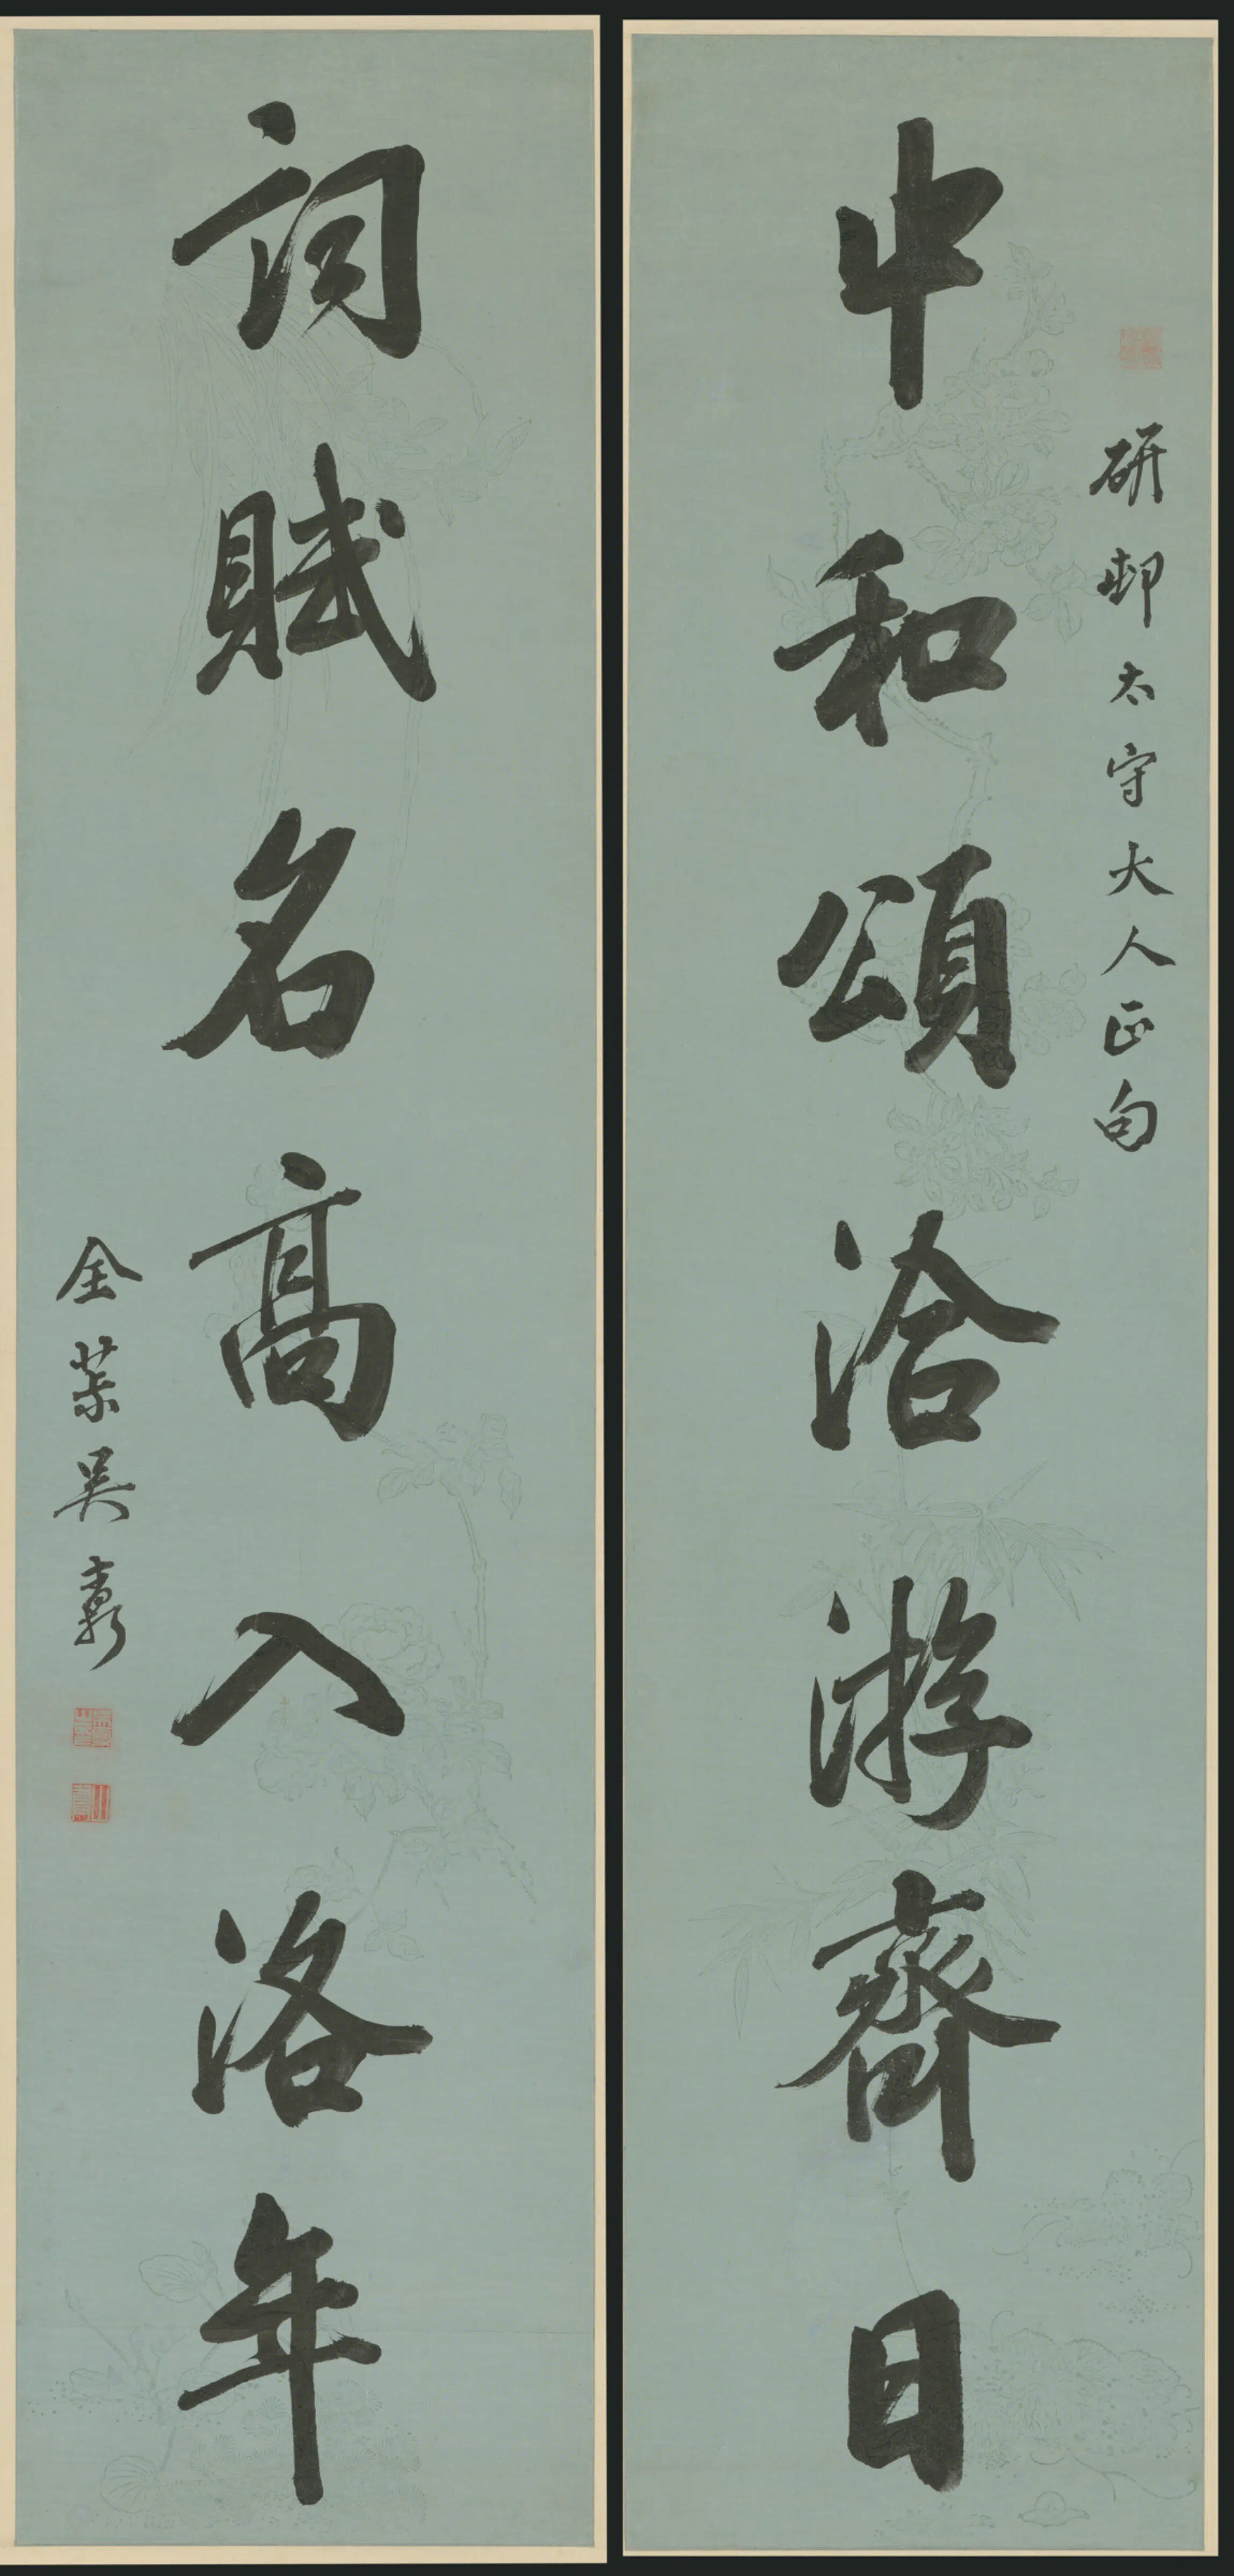 研邨太守大人正句
中和頌洽游齊日
詞賦名高入洛年
全茮吳鼒